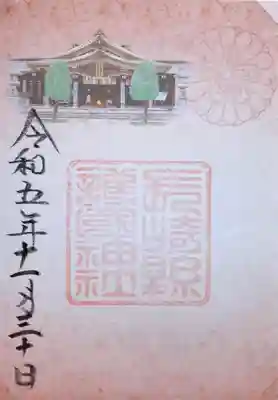 護國神社
令和五年十一月三十日